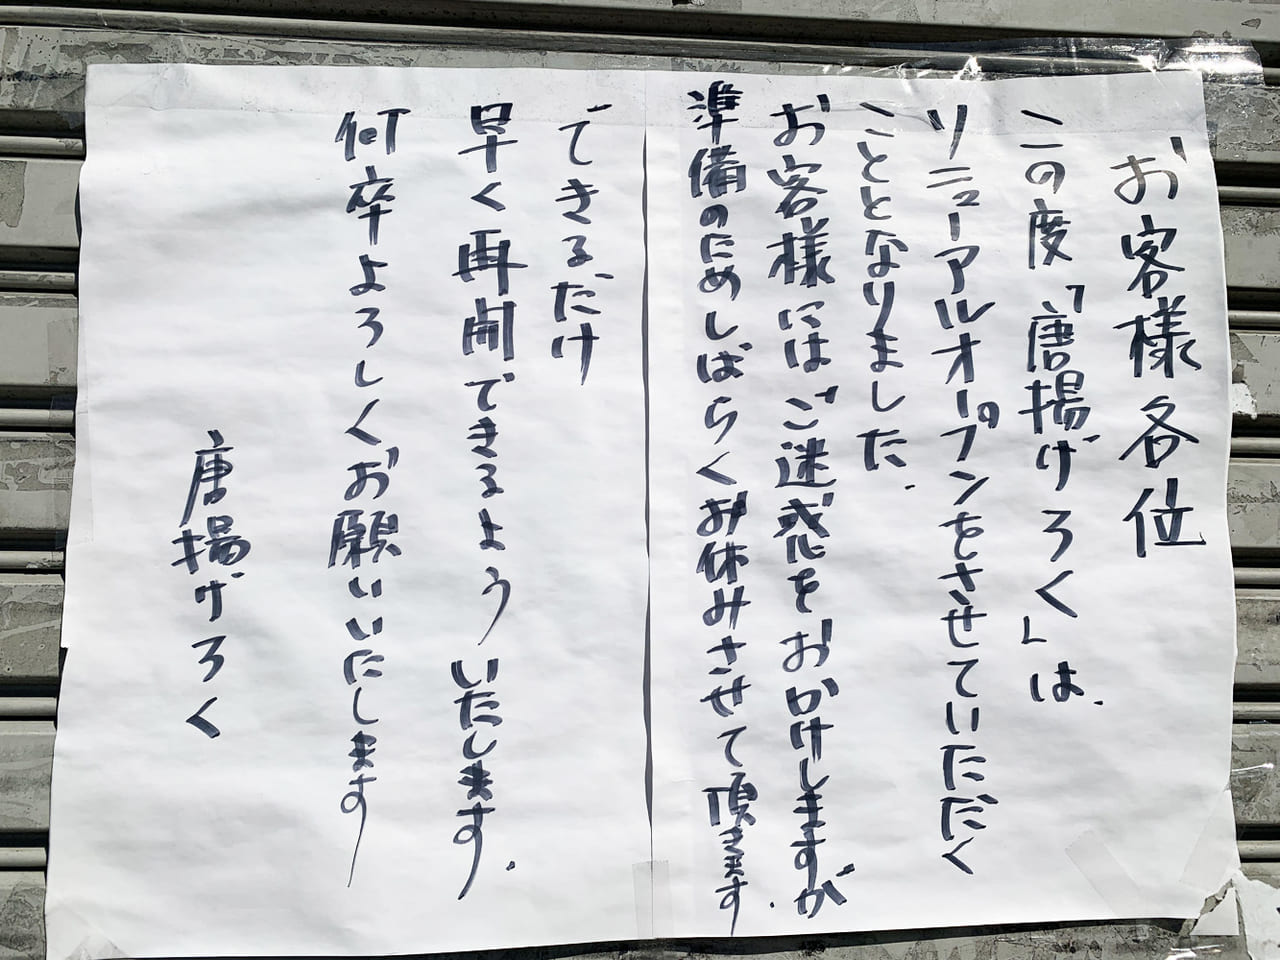 お客様各位
この度「唐揚げろく」は、
リニューアルオープンをさせていただく
こととなりました。
お客様にはご迷惑をおかけしますが、
準備のためしばらくお休みさせて頂きます
できるだけ
早く再開できるよういたします。
何卒よろしくお願いいたします
唐揚げろく